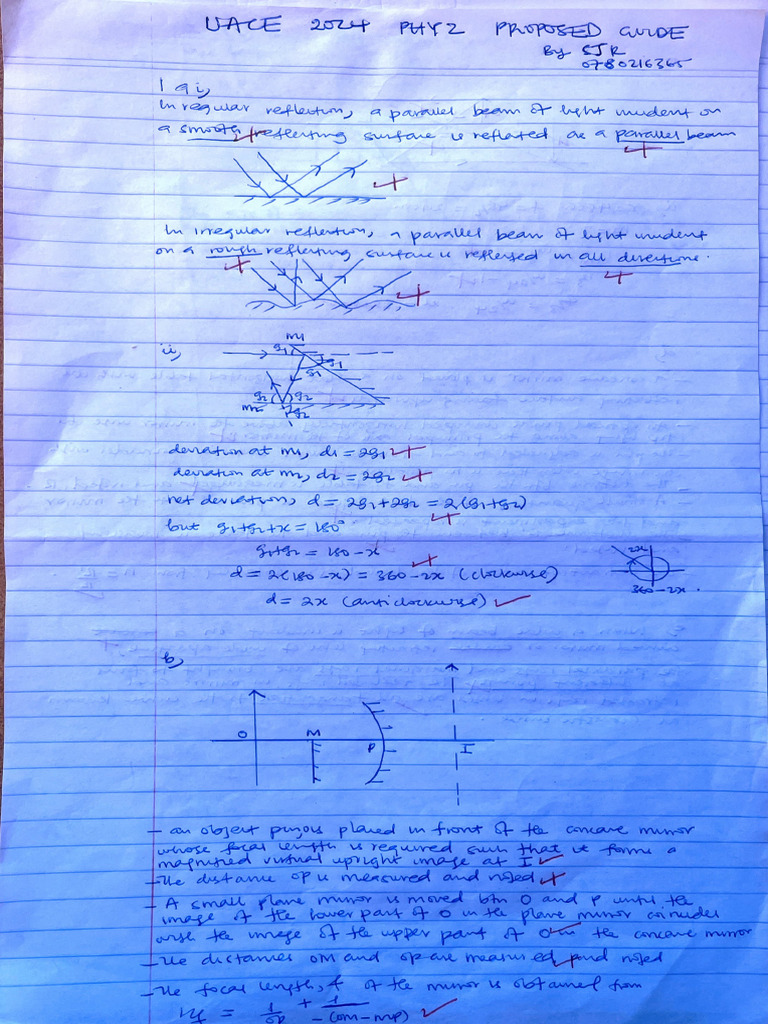 UACE 2024 PHY2 PROPOSED GUIDE
By SJR
0780216365
1 a i,
In regular reflection, a parallel beam of light incident on
a smooth reflecting surface is reflected as a parallel beam
In irregular reflection, a parallel beam of light incident
on a rough reflecting surface is reflected in all directions.
ii,
m1
g1
g1
g1
g2
g2
m2
g2
deviation at m1, d1 = 2g1
deviation at m2, d2 = 2g2
net deviation, d = 2g1+2g2 = 2(g1+g2)
but g1+g2+x = 180°
g1+g2 = 180-x
d = 2(180-x) = 360-2x (clockwise)
2x
360-2x.
d = 2x (anticlockwise)
b,
O M P I
- an object pin is placed in front of the concave mirror
whose focal length is required such that it forms a
magnified virtual upright image at I
- The distance op is measured and noted
- A small plane mirror is moved btn O and P until the
image of the lower part of O in the plane mirror coincides
with the image of the upper part of O in the concave mirror
- The distances OM and OP are measured and noted
- The focal length, f of the mirror is obtained from
1/f = 1/op + 1/-(om-mp)